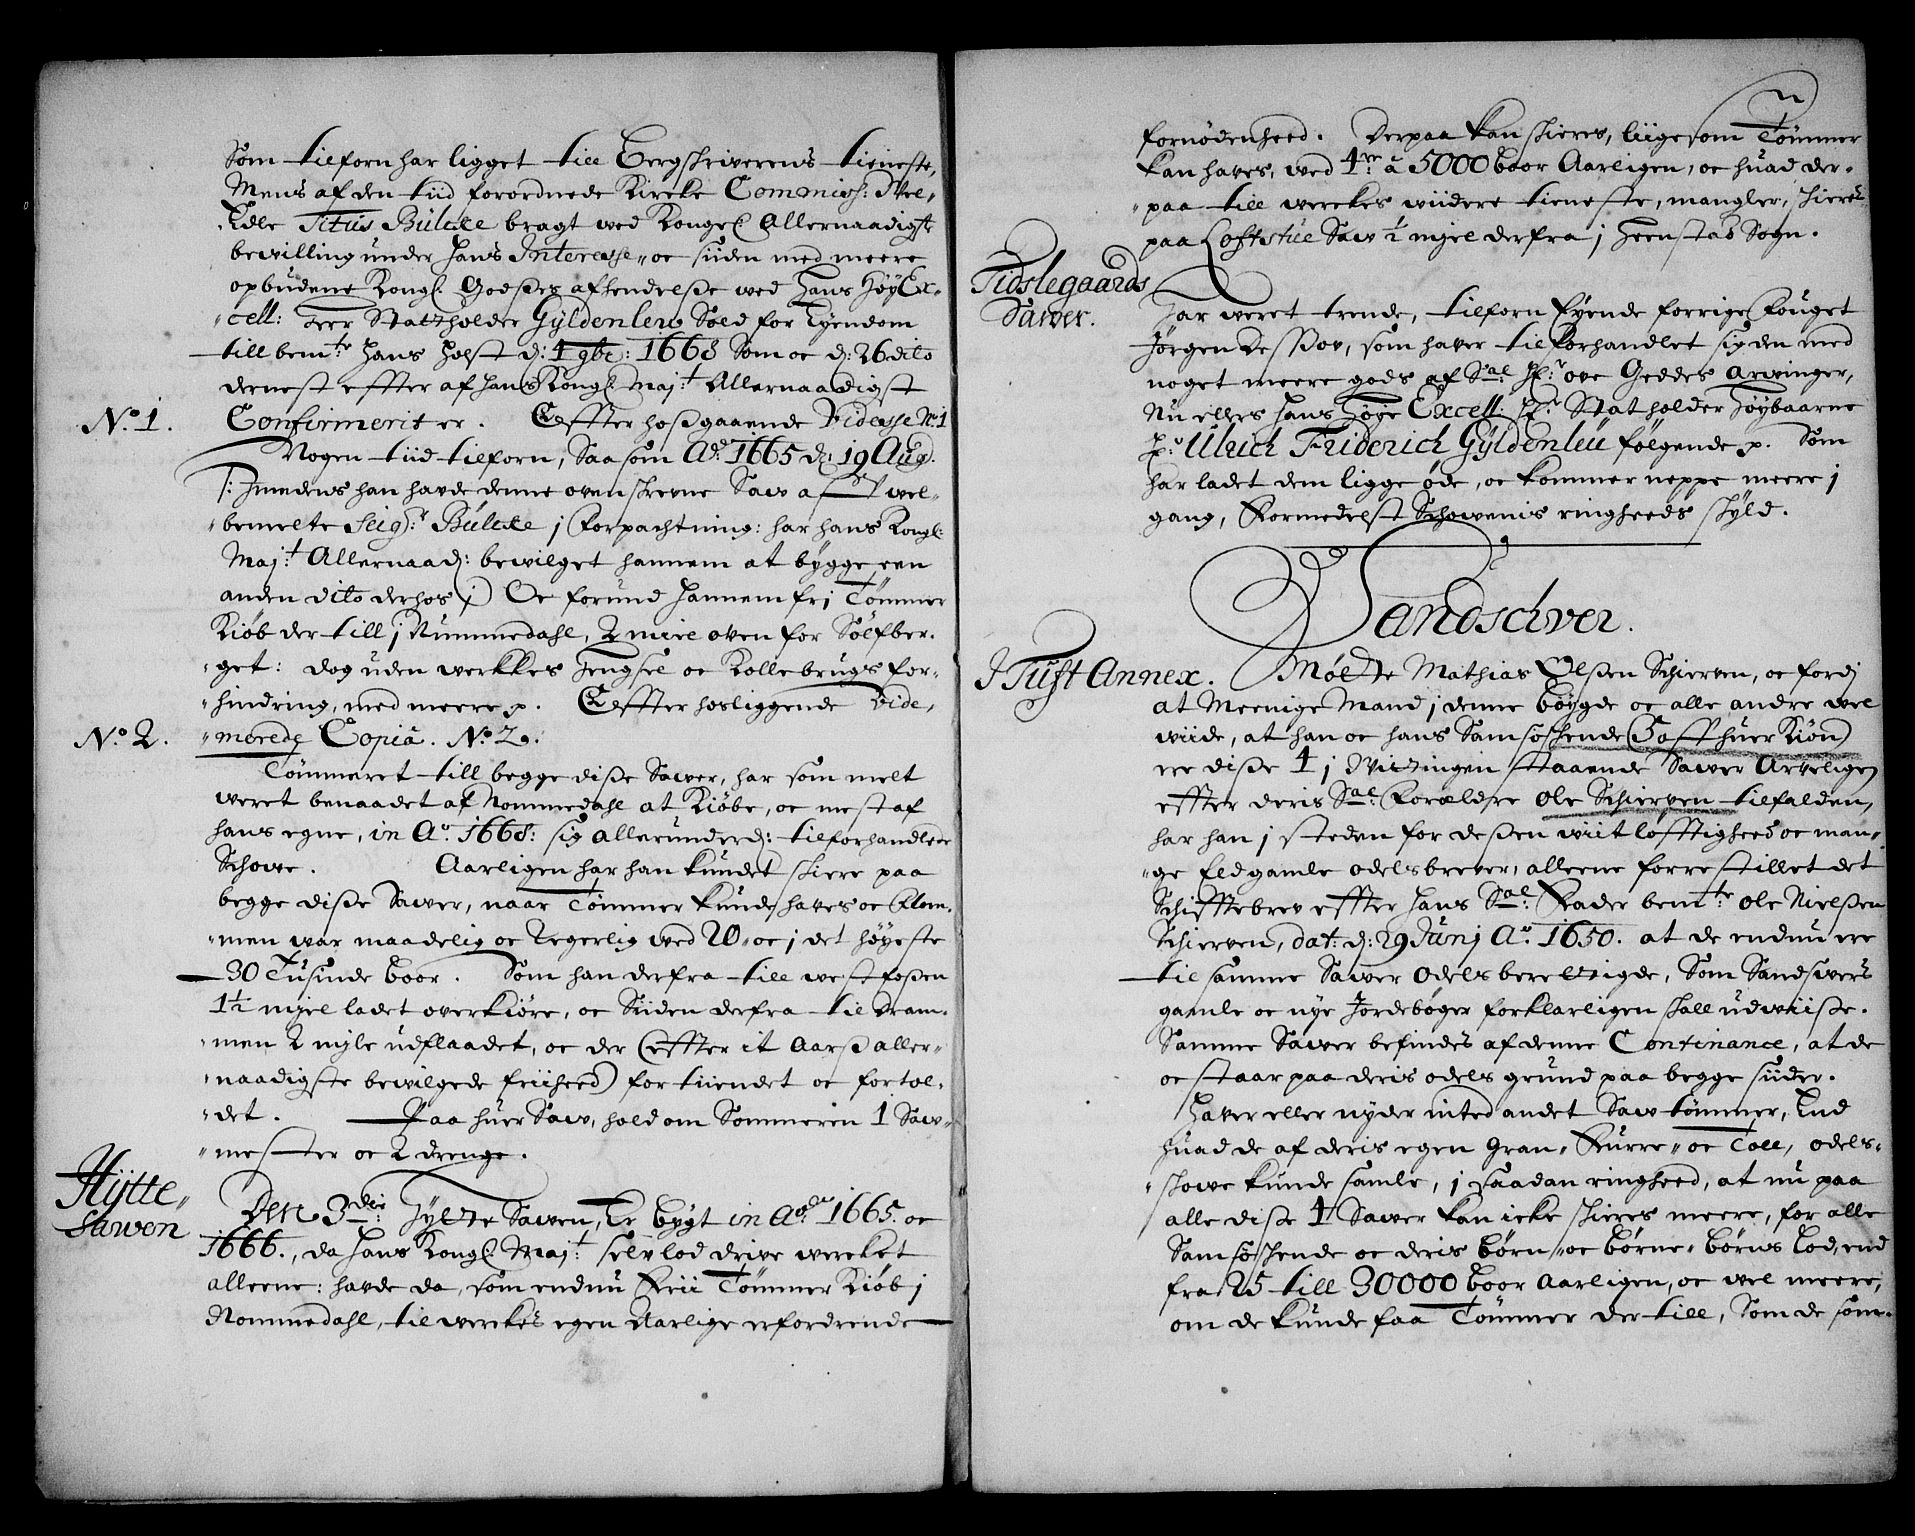 Som tilforn har ligget till Bergskriverens tieneste,
Mens af den tiid forordnede Kircke Commiss: Wel,,
Edle Titus Bülcke bragt ved Kongel Allernaadigste
bevilling under hans Interesse,, oc siiden med meere
opbudene Kongl: Godses afhendelse ved Hans Høy Ex-
,,cell: Herr Statholder Gyldenlew Sold for Eyendom
till bemte: Hans Holst d: 4 9br: 1668 Som oc d: 26 dito
dernest effter af Hans Kongl Maj:t Allernaadigst
No. 1. Confirmerit er. Effter hosgaaende Vidisse No 1
Nogen tiid tilforn, Saa som Ao 1665 d: 19 Aug.
/: Imedens han havde denne ovenskrevne Saw af vel-
,,bemelte Seigr: Bülcke j Forpachtning: har hans Kongl:
Maj:t Allernaad: bevilget hannem at bygge een
anden dito derhos j) Oc forund Hannem frj Tømmer
Kiøb der till j Nummedahl, 2 miile oven for Sølfber-
,,get: dog uden werkkes Hengsel oc Kollebrugs for-
,,hindring, med meere p. Effter hosliggende vide,
No. 2. ,,merede Copia. No. 2.
Tømmeret till begge disse Sawer, har som melt
weret benaadet af Nommedahl at Kiøbe, oc mest af
hans egne, in Ao 1668: sig allerunderd: tilforhandlede
Schowe. Aarligen har han kundet skiere paa
begge disse Sawer, naar Tømmer kunde haves oc Flom-
,,men war maadelig oc Legerlig ved 20,, oc j det høyeste
30 Tusinde boor. Som han derfra till westfossen
1½ mjel ladet overkiøre, oc Siiden derfra til Dram-
,,men 2 mjle udflaadet, oc der (effter it Aars aller-
,,naadigste bevilgede friiheed) fortiiendet oc fortol-
,,det. Paa huer Saw, hold om Sommeren 1 Saw-
,,mester oc 2 drenge.
Hÿtte,, Sawen
Den 3die: Hytte Sawen, Er bygt in Ao 1665. oc
1666., da Hans Kongl: Maj:t selv lod drive wercket
alleene: havde da, som endnu Frii Tømmer Kiøb j
Nommedahl, til werckes egen Aarlige erfordrende
fornødenheed. Derpaa kan skieres, liigesom Tømmer
kan haves, ved 4re: à 5000 boor Aarligen, oc huad der-
,,paa till werckes wiidere tieneste, mangler, skieres
paa Loftstue Saw ½ mjel derfra j Heenstad Sogn.
Tidslegaards Sawer.
Har weret trende, tilforn Eyende forrige Fouget
Jørgen Desßov, som haver tilforhandlet sig den med
noget meere gods af Sal: Hr: ove Geddes arvinger,
Nu elles Hans Høye Excell: Hr: Statholder Høybaarne
Hr: Ulrich Friderich Gyldenleu følgende p. Som
har ladet dem ligge øde, oc kommer neppe meere j
gang, Formedelst Schowenis ringheeds skyld.
Sandschver.
I Tuft Annex. Mødte Mathias Olsßen Schierven, oc fordj
at Meenige Mand j denne bøygde oc alle andre wel
wiide, at han oc hans Samsøskende (Saa huer Kiøn)
ere disse 4 j Wittingen staaende Sawer Arveligen
effter deris Sal: Forældre Ole Schierven tilfalden,
har han j steden for desßen wiitløfftigheed oc man-
,,ge Eldgamle odelsbrever, alleene forrestillet det
Schifftebrev effter Hans Sal: Fader bemte: Ole Nielsßen
Schierven, dat: d: 29 Junj Ao. 1650. at de endnu ere
til samme Sawer Odels berettigde, Som Sandsvers
gamle oc nye Jordebøger forklarligen skall udwiisße.
Samme Sawer befindes af denne Continance, at de
oc staar paa deris odels grund paa begge siider.
Haver eller nyder inted andet Saw tømmer, End
huad de af deris egen Gran,, Furre,, oc Tall, odels-
,,skowe kunde samle, j saadan ringheed, at nu paa
alle disse 4 Sawer kan icke skieres meere, for alle
Samsøskende oc deris børn,, oc børne,, børns Lod, end
fra 25 till 30000 boor Aarligen, oc wel meere,
om de kunde faa Tømmer der till, Som de som-